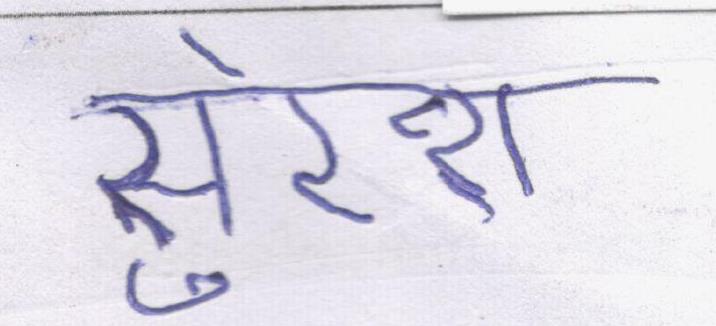 सुरेश